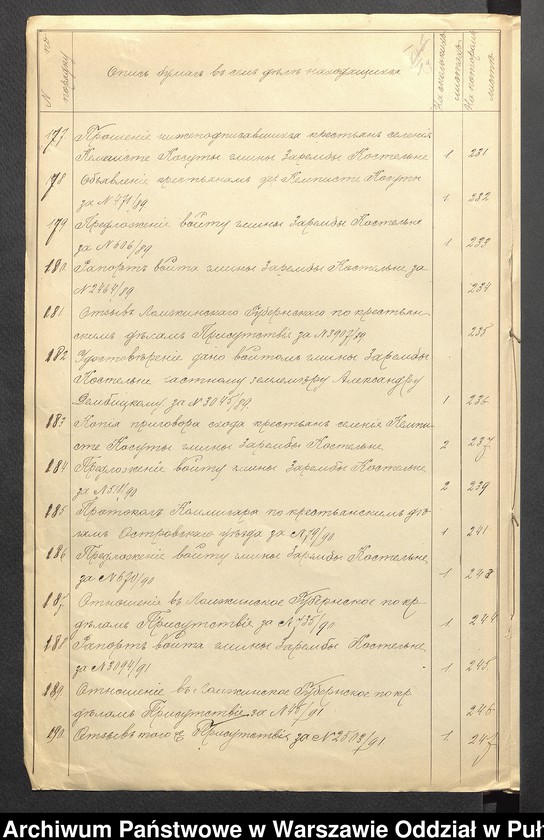 N по порядку
Опись бумагъ въ семъ дѣлѣ находящихся
На сколькихъ листахъ
На которомъ листѣ
177 Прошеніе нижеподписавшихся крестьянъ селенія
Кемписте Косуты гмины Зарембы Костельне 1 231
178 Объявленіе крестьянамъ дер Кемписте Косуты
за N 471/89 1 232
179 Предложеніе войту гмины Зарембы Костельне
за N 606/89 1 233
180 Рапортъ войта гмины Зарембы Костельне за
N 2464/89 234
181 Отзывъ Ломжинскаго Губернскаго по крестьян-
скимъ дѣламъ Присутствія за N 3907/89 235
182 Удостовѣреніе дано войтомъ гмины Зарембы
Костельне частному землемѣру Александру
Дембицкому за N 3045/89 1 236
183 Копія приговора схода крестьянъ селенія Кемпи-
сте Косуты гмины Зарембы Костельне 2 237
184 Предложеніе войту гмины Зарембы Костельне
за N 511/90 2 239
185 Протоколъ Коммисара по крестьянскимъ дѣ-
ламъ Островскаго уѣзда за N 79/90 1 241
186 Предложеніе войту гмины Зарембы Костельне
за N 670/90 1 243
187 Отношеніе въ Ломжинское Губернское по кр
дѣламъ Присутствіе за N 735/90 1 244
188 Рапортъ войта гмины Зарембы Костельне
за N 3094/91 1 245
189 Отношеніе въ Ломжинское Губернское по кр
дѣламъ Присутствіе за N 45/91 246
190 Отзывъ того Присутствія за N 2503/91 1 247
Archiwum Państwowe w Warszawie Oddział w Puł